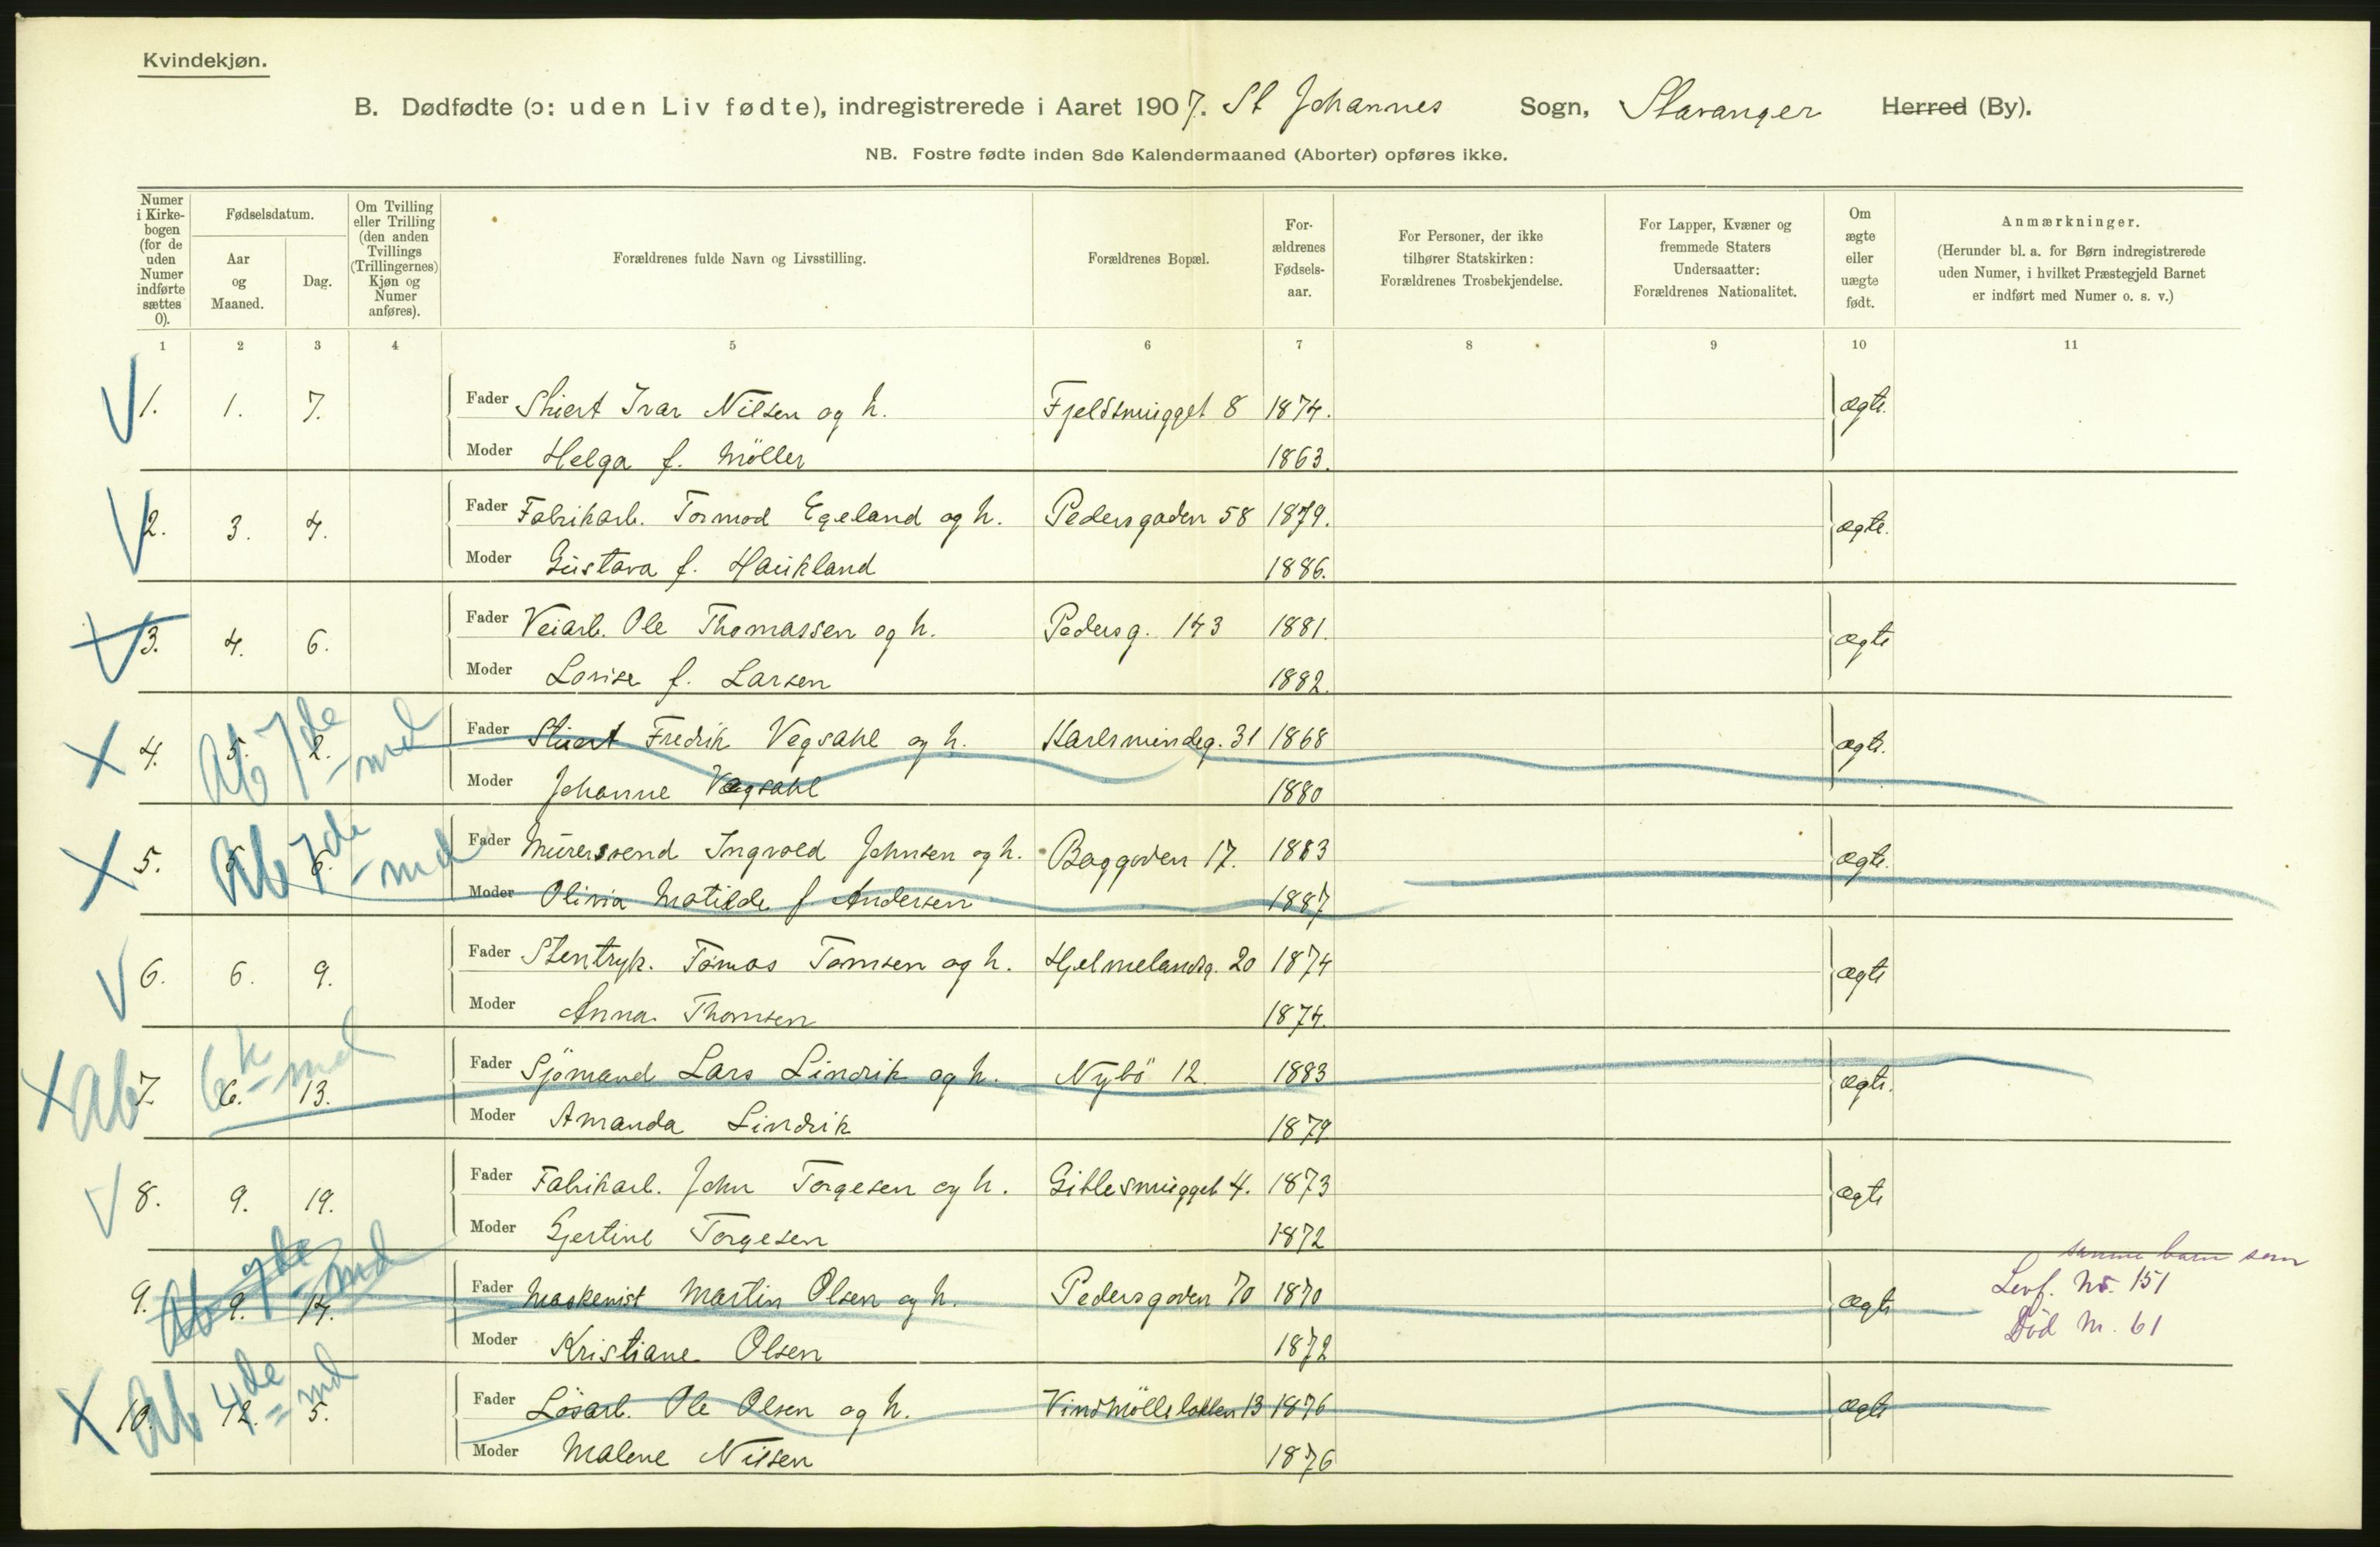 Kvindekjøn.
B. Dødfødte (ɔ: uden Liv fødte), indregistrerede i Aaret 1907. St Johannes Sogn, Stavanger Herred (By).
NB. Fostre fødte inden 8de Kalendermaaned (Aborter) opføres ikke.
Numer i Kirkebogen (for de uden Numer indførte sættes 0).
Fødselsdatum.
Aar og Maaned.
Dag.
Om Tvilling eller Trilling (den anden Tvillings (Trillingernes) Kjøn og Numer anføres).
Forældrenes fulde Navn og Livsstilling.
Forældrenes Bopæl.
Forældrenes Fødselsaar.
For Personer, der ikke tilhører Statskirken: Forældrenes Trosbekjendelse.
For Lapper, Kvæner og fremmede Staters Undersaatter: Forældrenes Nationalitet.
Om ægte eller uægte født.
Anmærkninger.
(Herunder bl. a. for Børn indregistrerede uden Numer, i hvilket Præstegjeld Barnet er indført med Numer o. s. v.)
1 2 3 4 5 6 7 8 9 10 11
1. 1. 7. Fader Stuert Ivar Nilsen og h. Fjeldsmugget 8 1874. ægte.
Moder Helga f. Möller 1863.
2. 3. 4. Fader Fabrikarb. Tormod Egeland og h. Pedersgaden 58 1879. ægte.
Moder Gustava f. Haukland 1886.
3. 4. 6. Fader Veiarb. Ole Thomassen og h. Pedersg. 143 1881. ægte
Moder Lovise f. Larsen 1882.
Ab 7de md
4. 5. 2. Fader Stuert Fredrik Vegsahl og h. Karlsmindeg. 31 1868 ægte.
Moder Johanne Vægsahl 1880
Ab 7de md
5. 5. 6. Fader Murersvend Ingvald Johnsen og h. Baggaden 17. 1883 ægte.
Moder Olivia Matilde f. Andersen 1887
6. 6. 9. Fader Stentryk. Tomas Tomsen og h. Hjelmelandsg. 20 1874 ægte
Moder Anna Thomsen 1874.
Ab 6te md
7. 6. 13. Fader Sjömand Lars Lindrik og h. Nybö 12. 1883 ægte.
Moder Amanda Lindrik 1879
8. 9. 19. Fader Fabrikarb. John Torgesen og h. Giblesmugget 4. 1873 ægte
Moder Gjertine Torgesen 1872
Ab 7de md
samme barn som
9. 9. 14. Fader Maskenist Martin Olsen og h. Pedersgaden 70 1870 ægte Levf. No. 151
Död N. 61
Moder Kristiane Olsen 1872
Ab 4de md
10. 12. 5. Fader Lösarb. Ole Olsen og h. Vindmöllebakken 13 1876 ægte
Moder Malene Nilsen 1876